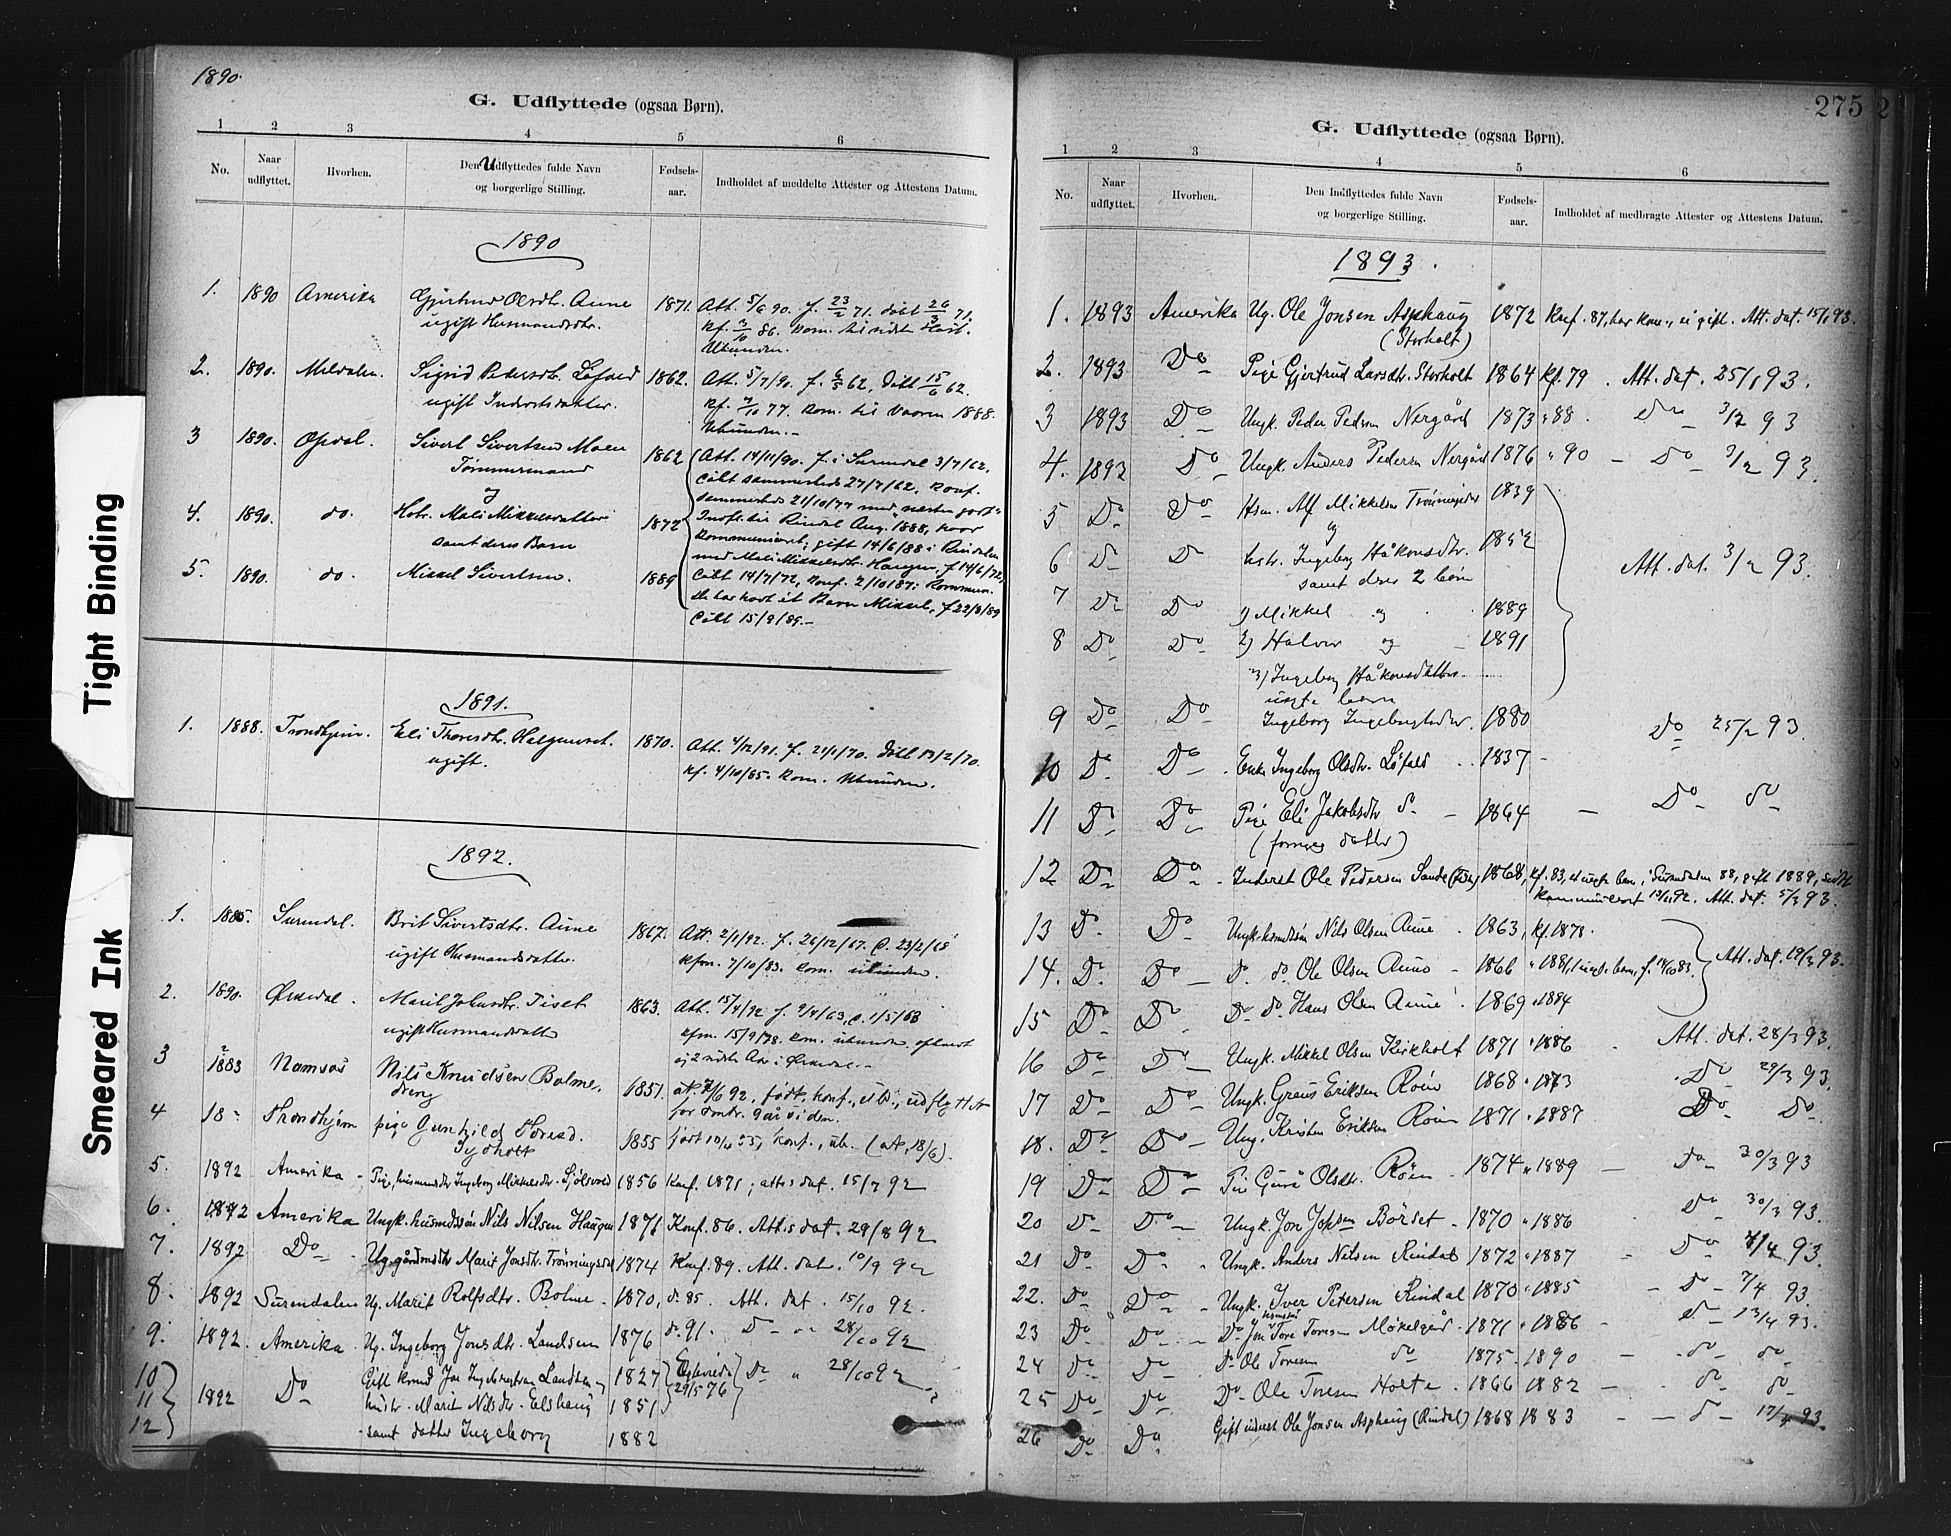 1890.
G. Udflyttede (ogsaa Børn).
1 2 3 4 5 6
No. Naar udflyttet. Hvorhen. Den Udflyttedes fulde Navn og borgerlige Stilling. Fødsels-aar. Indholdet af meddelte Attester og Attestens Datum.
1890
1. 1890 Amerika Gjertrud Olsdtr. Aune 1871. Att. 5/6 90. f. 23/2 71. døbt 26/3 71.
ugift Husmandsdtr. kf. 3/10 86. kom. til sidst Høst.
Ubunden.
2. 1890. Meldalen. Sigrid Pedersdtr. Løfald 1862. Att. 5/7/90. f. 62. døbt 15/6 62.
ugift Inderstdatter. kf. 77. kom. til Vaaren 1888.
Ubunden.-
3 1890. Opdal. Sivert Sivertsen Moen 1862 Att. 14/11/90. f. i Surendal 3/7/62.
Tømmermand døbt sammesteds 27/7/62, konf.
og sammesteds 21/10/77 med "næsten godt"
4. 1890. do. Hstr. Mali Mikkelsdatter 1872 Indfl. til Rindal Aug. 1888, hvor
samt deres Barn kommuniceret; gift 14/6/88 i Rindalen
5. 1890. do. Mikkel Sivertsen. 1889 med Mali Mikkelsdtr. Haugen, f. 14/6/72,
døbt 14/7/72, konf. 2/10 87; kommun.
De har havt et Barn Mikkel, f. 22/8/89
døbt 15/9/89.-
1891.
1. 1888. Trondhjem. Eli Thoresdtr. Helgetunet. 1870. Att. 4/12/91. f. 21/1/70. døbt 13/2/70.
ugift. kf. 4/10/85. kom. Ubunden.
1892.
1. 1885. Surendal. Brit Sivertsdtr. Aune 1867. Att. 2/1/92. f. 26/12/67. d. 23/2/68
ugift Husmandsdatter. kfm. 7/10/83. kom. ubunden.
2. 1890. Ørkedal. Marit Johnsdtr. Tiset 1863. Att. 15/4/92 f. 9/4/63, d. 1/5/63
ugift Husmandsdatt kfm. 15/9/78. kom. ubunden. opholdt
sig 2 sidste Aar i Ørkedal.-
3 1883 Namsos Nils Knudsen Bolme, 1851. at. 7/6 92, født, konf., ub., udflyttet
dreng for omtr. 9 år siden.
4 18 Throndhjem pige Gunhild Toresd. 1855 født 10/4 55, konf., ub. (at. 18/6).
Tydholt
5. 1892 Amerika - Pige, husmandsdtr Ingeborg Mikkelsdtr. Sjølsvold 1856 Knf. 1871; attes dat. 15/7 92
6. 1892 Amerika Ungk. husmdssøn Nils Nilsen Haugen 1871 Konf. 86. Attes dat. 29/8 92
7. 1892 Do Ug. gårdmdtr Marit Jonsdtr. Trønningsdal 1874 Knf. 89. Att. dat. 10/9 92
8. 1892 Surendalen Ug. Marit Rolfsdtr. Bolme - 1870, d. 85. Att. dat. 15/10 92.
9. 1892. Amerika. Ug. Ingeborg Jonsdtr. Landsem 1876 do. 91. D 28/10 92
10 Gift hsmd Jon Ingebrigtsen Landsem og 1827 Egtevied 29/5 76 Do " 28/10 92
11 1892 Do hustr. Marit Nilsdtr. Elshaug 1851
12 samt datter Ingeborg 1882
275
G. Udflyttede (ogsaa Børn).
1 2 3 4 5 6
No. Naar udflyttet. Hvorhen. Den Indflyttedes fulde Navn og borgerlige Stilling. Fødsels-aar. Indholdet af medbragte Attester og Attestens Datum.
1893.
1. 1893 Amerika Ug. Ole Jonsen Asphaug 1872 Knf. 87, har kom., ei gift. Att. dat. 15/1 93.
(Storholt)
2. 1893 Do Pige Gjertrud Larsdtr. Storholt 1864 kf. 79. Att. dat. 25/1 93.
3 1893 Do Ungk. Peder Pedersen Nergård 1873 " 88. Do 3/2 93
4. 1893 Do Ungk. Anders Pedersen Nergård 1876 " 90 - Do 3/2 93.
5 Do Do Hsm. Alf Mikkelsen Trønningsdal 1839
og
6 Do Do hstr. Ingeborg Håkonsdtr. 1852 Att. dat. 3/2 93.
samt deres 2 børn
7 Do Do 1) Mikkel og 1889
8 Do Do 2) Halvor og 1891
3) Ingeborg Håkonsdatters
uægte barn
9 Do Do Ingeborg Ingebrigtsdtr. 1880 Do 25/2 93.
10 Do Do Enke Ingeborg Olsdtr. Løfald 1837 -
11 Do Do Pige Eli Jakobsdtr do - 1864 - Do do
(forriges datter)
12 Do Do Inderst Ole Pedersen Sande 1868, kf. 83, et uægte barn, i Surendalen 88, gift 1889, sidst
kommuniceret 13/11 92. Att. dat. 5/3 93.
13 Do Do Ungk. hsmdssøn Nils Olsen Aune. 1863, kf. 1878.
14. Do Do do. do. Ole Olsen Aune - 1866 " 1881, 1 uægte barn, f. 14/10 83. Att. dat. 19/3 93.
15 Do Do Do do. Hans Olsen Aune 1869 " 1884
16 Do Do Ungk. Mikkel Olsen Kirkholt 1871 " 1886 Att. dat. 28/3 93.
17 Do Do Ungk. Græus Eriksen Røen 1868 " 1873 Do 29/3 93.
18. Do Do Ung. Kristen Eriksen Røen 1871 " 1887 Do Do
19 Do Do Pige Guru Olsdtr. Røen 1874 " 1889 - Do 30/3 93
20 Do Do Ungk. Jon Jonsen Børset - 1870 " 1886 Do 30/3 93.
21 Do Do Ungk. Anders Nilsen Rindal 1872 " 1887 - Do 7/4 93.
22. Do Do Ungk. Iver Petersen Rindal 1870 " 1885 - Do 7/4 93.
23 Do Do Do hsmdsøn Jon Tore Toresen Møkelgård 1871 " 1886 Do 13/4 93.
24 Do Do Do Ole Toresen do 1875 " 1890 - do do
25 Do Do Do Ole Toresen Holte 1866 1882 - do do
26 Do Do Gift inderst Ole Jonsen Asphaug (Rindal) 1868 1883 - do 17/4 93.
Tight Binding
Smeared Ink